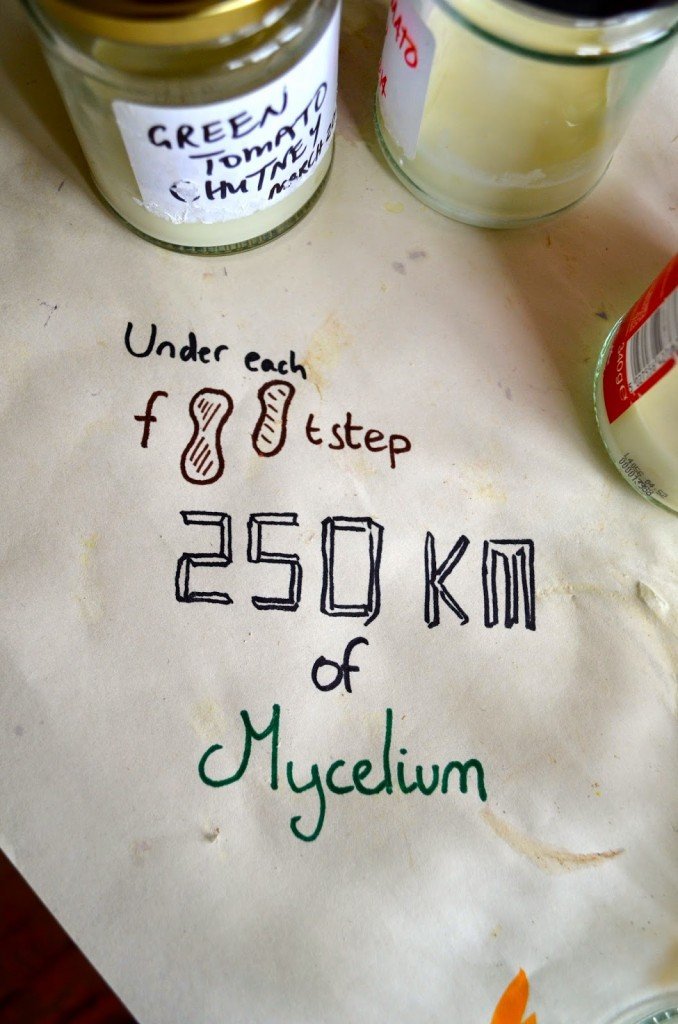 GREEN
TOMATO
CHUTNEY
MARCH
Under each
f tstep
250 KM
of
Mycelium